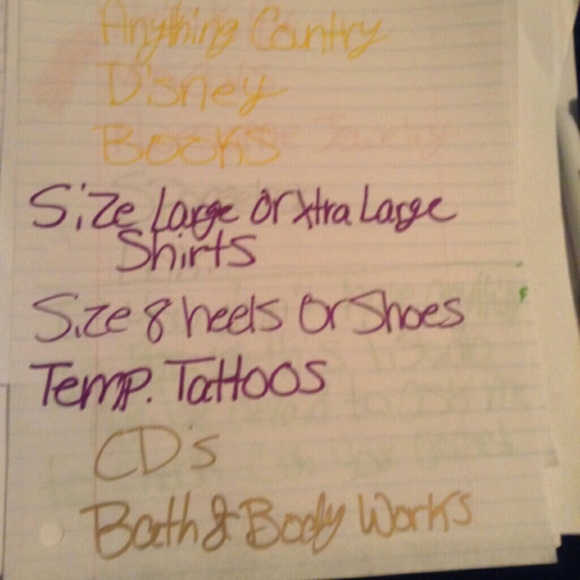 Anything Country
Disney
Books
Size Large or Xtra Large
Shirts
Size 8 heels or Shoes
Temp. Tattoos
CD's
Bath & Body Works